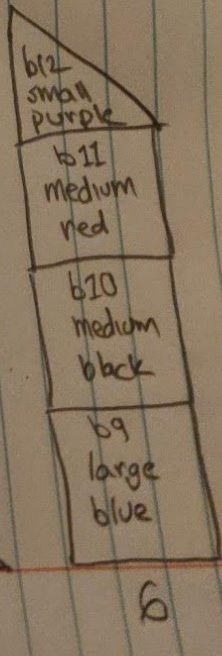 b12
small
purple
b11
medium
red
b10
medium
black
b9
large
blue
6